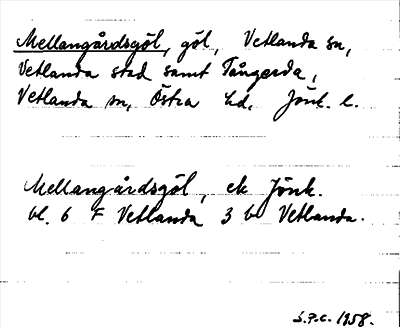 Mellangårdsgöl, göl, Vetlanda sn,
Vetlanda stad samt Tångerda,
Vetlanda sn, Östra hd, Jönk. l.
Mellangårdsgöl, ek Jönk.
bl. 6 F Vetlanda 3 b Vetlanda.
S.P.C. 1958.